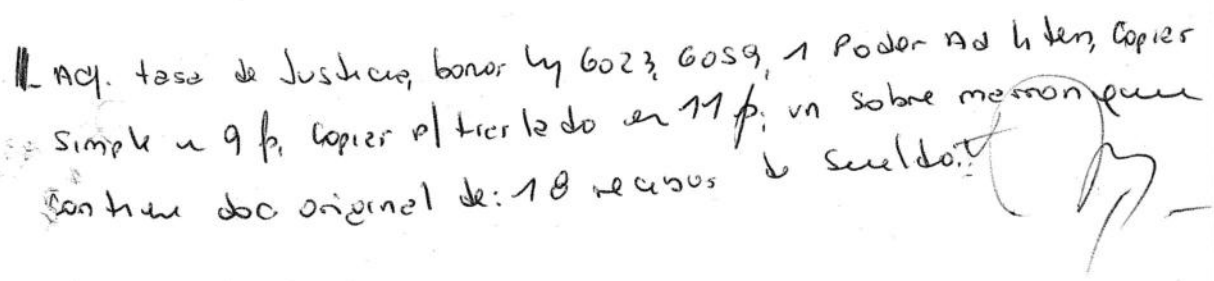 Adj. tasa de Justicia, bonos ley 6023, 6059, 1 Poder Ad litem, Copias
simple en 9 f, copias p/ traslado en 11 f; un sobre marron que
contiene doc original de: 18 recibos de sueldo.